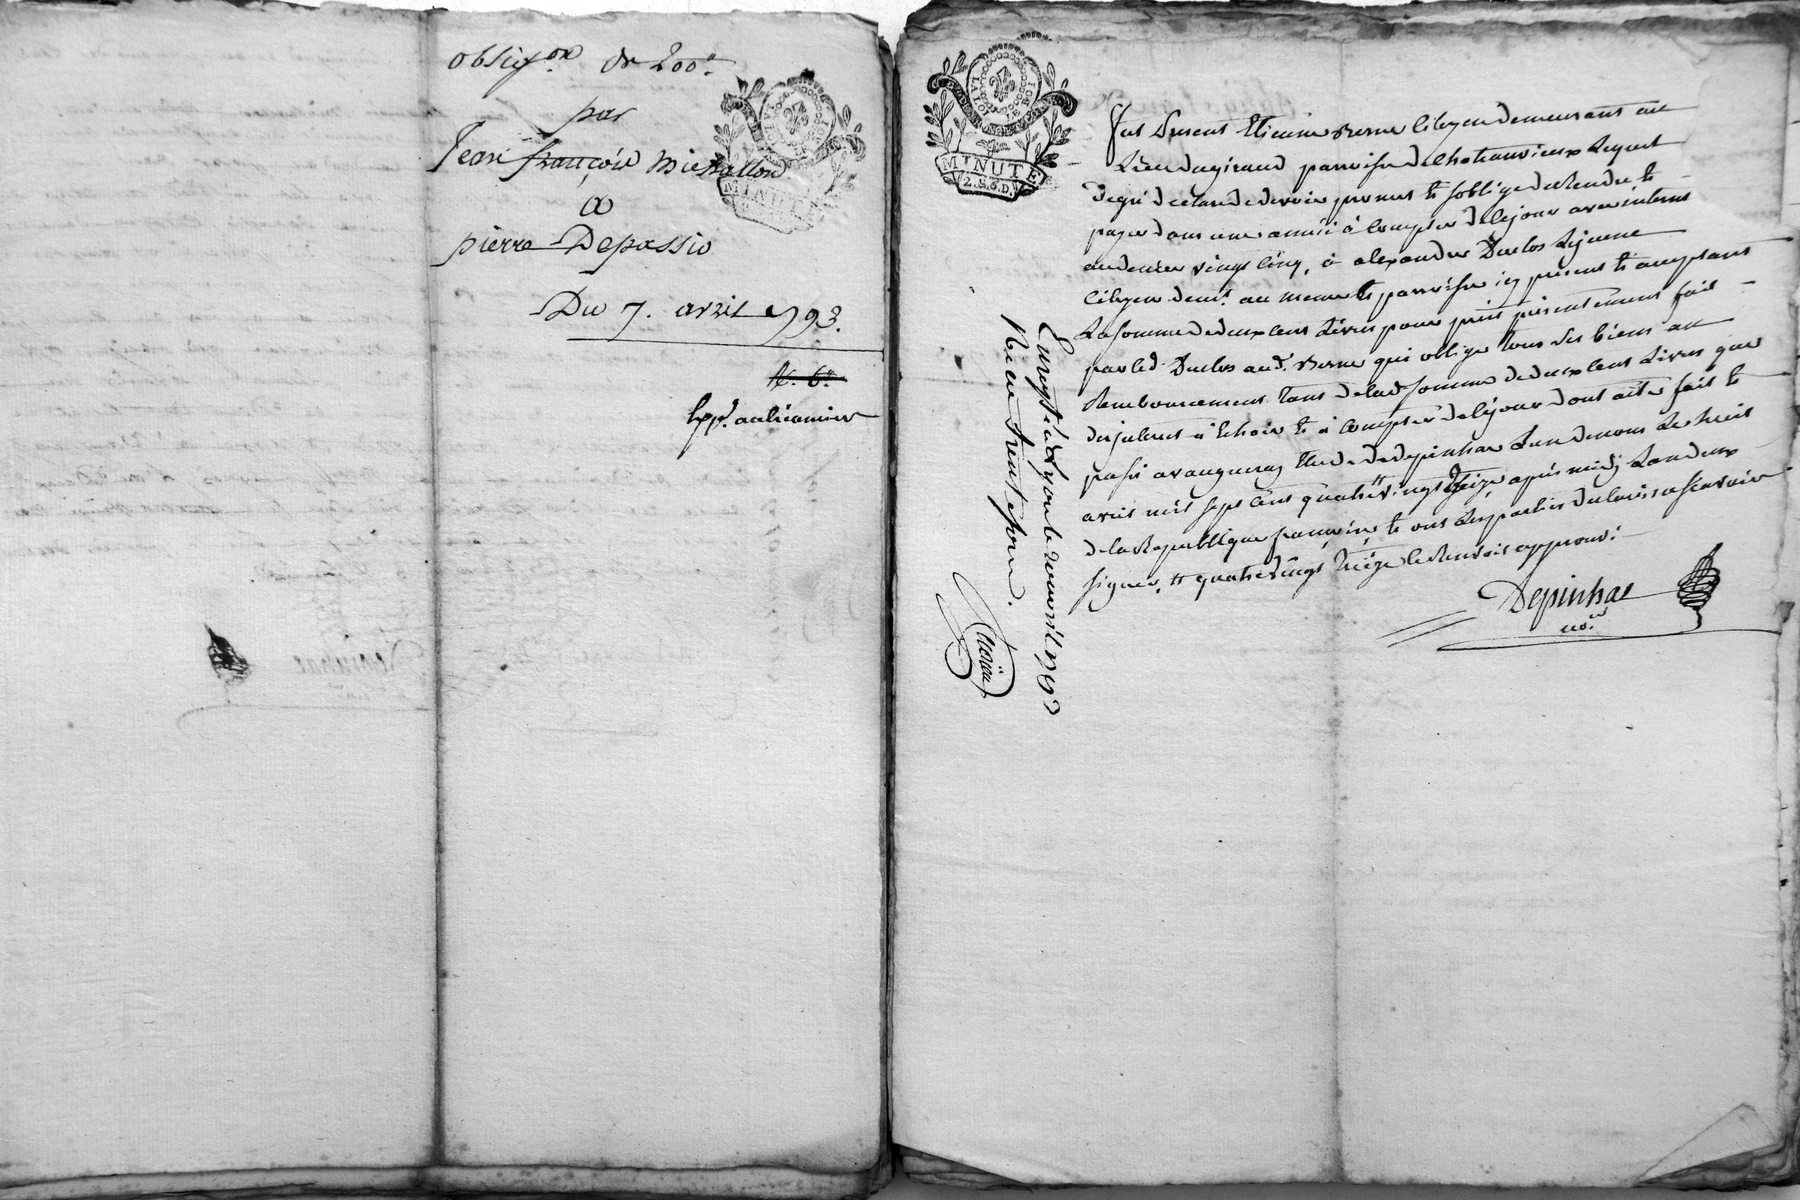 obligon de 200#
par
Jean françois michallon
a
pierre Depassio
Du 7. avril 1793.
N. 6.
LA LOY LE ROI
MINUTE
LA LOY LE ROI
MINUTE
2. S. 6. D.
fut présent Etienne Berne Citoyen demeurant au
Lieu parroisse de Chateauvieux Lequel
de gré declare devoir promet et soblige de Rendre et
payer dans une année à Compter de ce jour avec interest
au denier vingt Cinq, à alexandre Duclos Lejeune
Citoyen demt. au meme et parroisse icy present et acceptant
La somme de deux cens Livres pour prêt presentement fait
par led. Duclos aud. Berne qui oblige tous ses biens au
Remboursement tant de lad. somme de deux cens Livres que
des interets à Echoir et à Compter de ce jour dont acte fait et
passé a vaugneray Etude de depinhac L'un de nous Le huit
avril mil sept cens quatre vingt treize après midy L'an deux
de la Republique françoise, et ont Les parties de ce scavoir
signer, quatre vingt treize le Renvoit approuvé
Depinhac
nore
Enregté à Lyon le avril 1793
Recu trente sous.